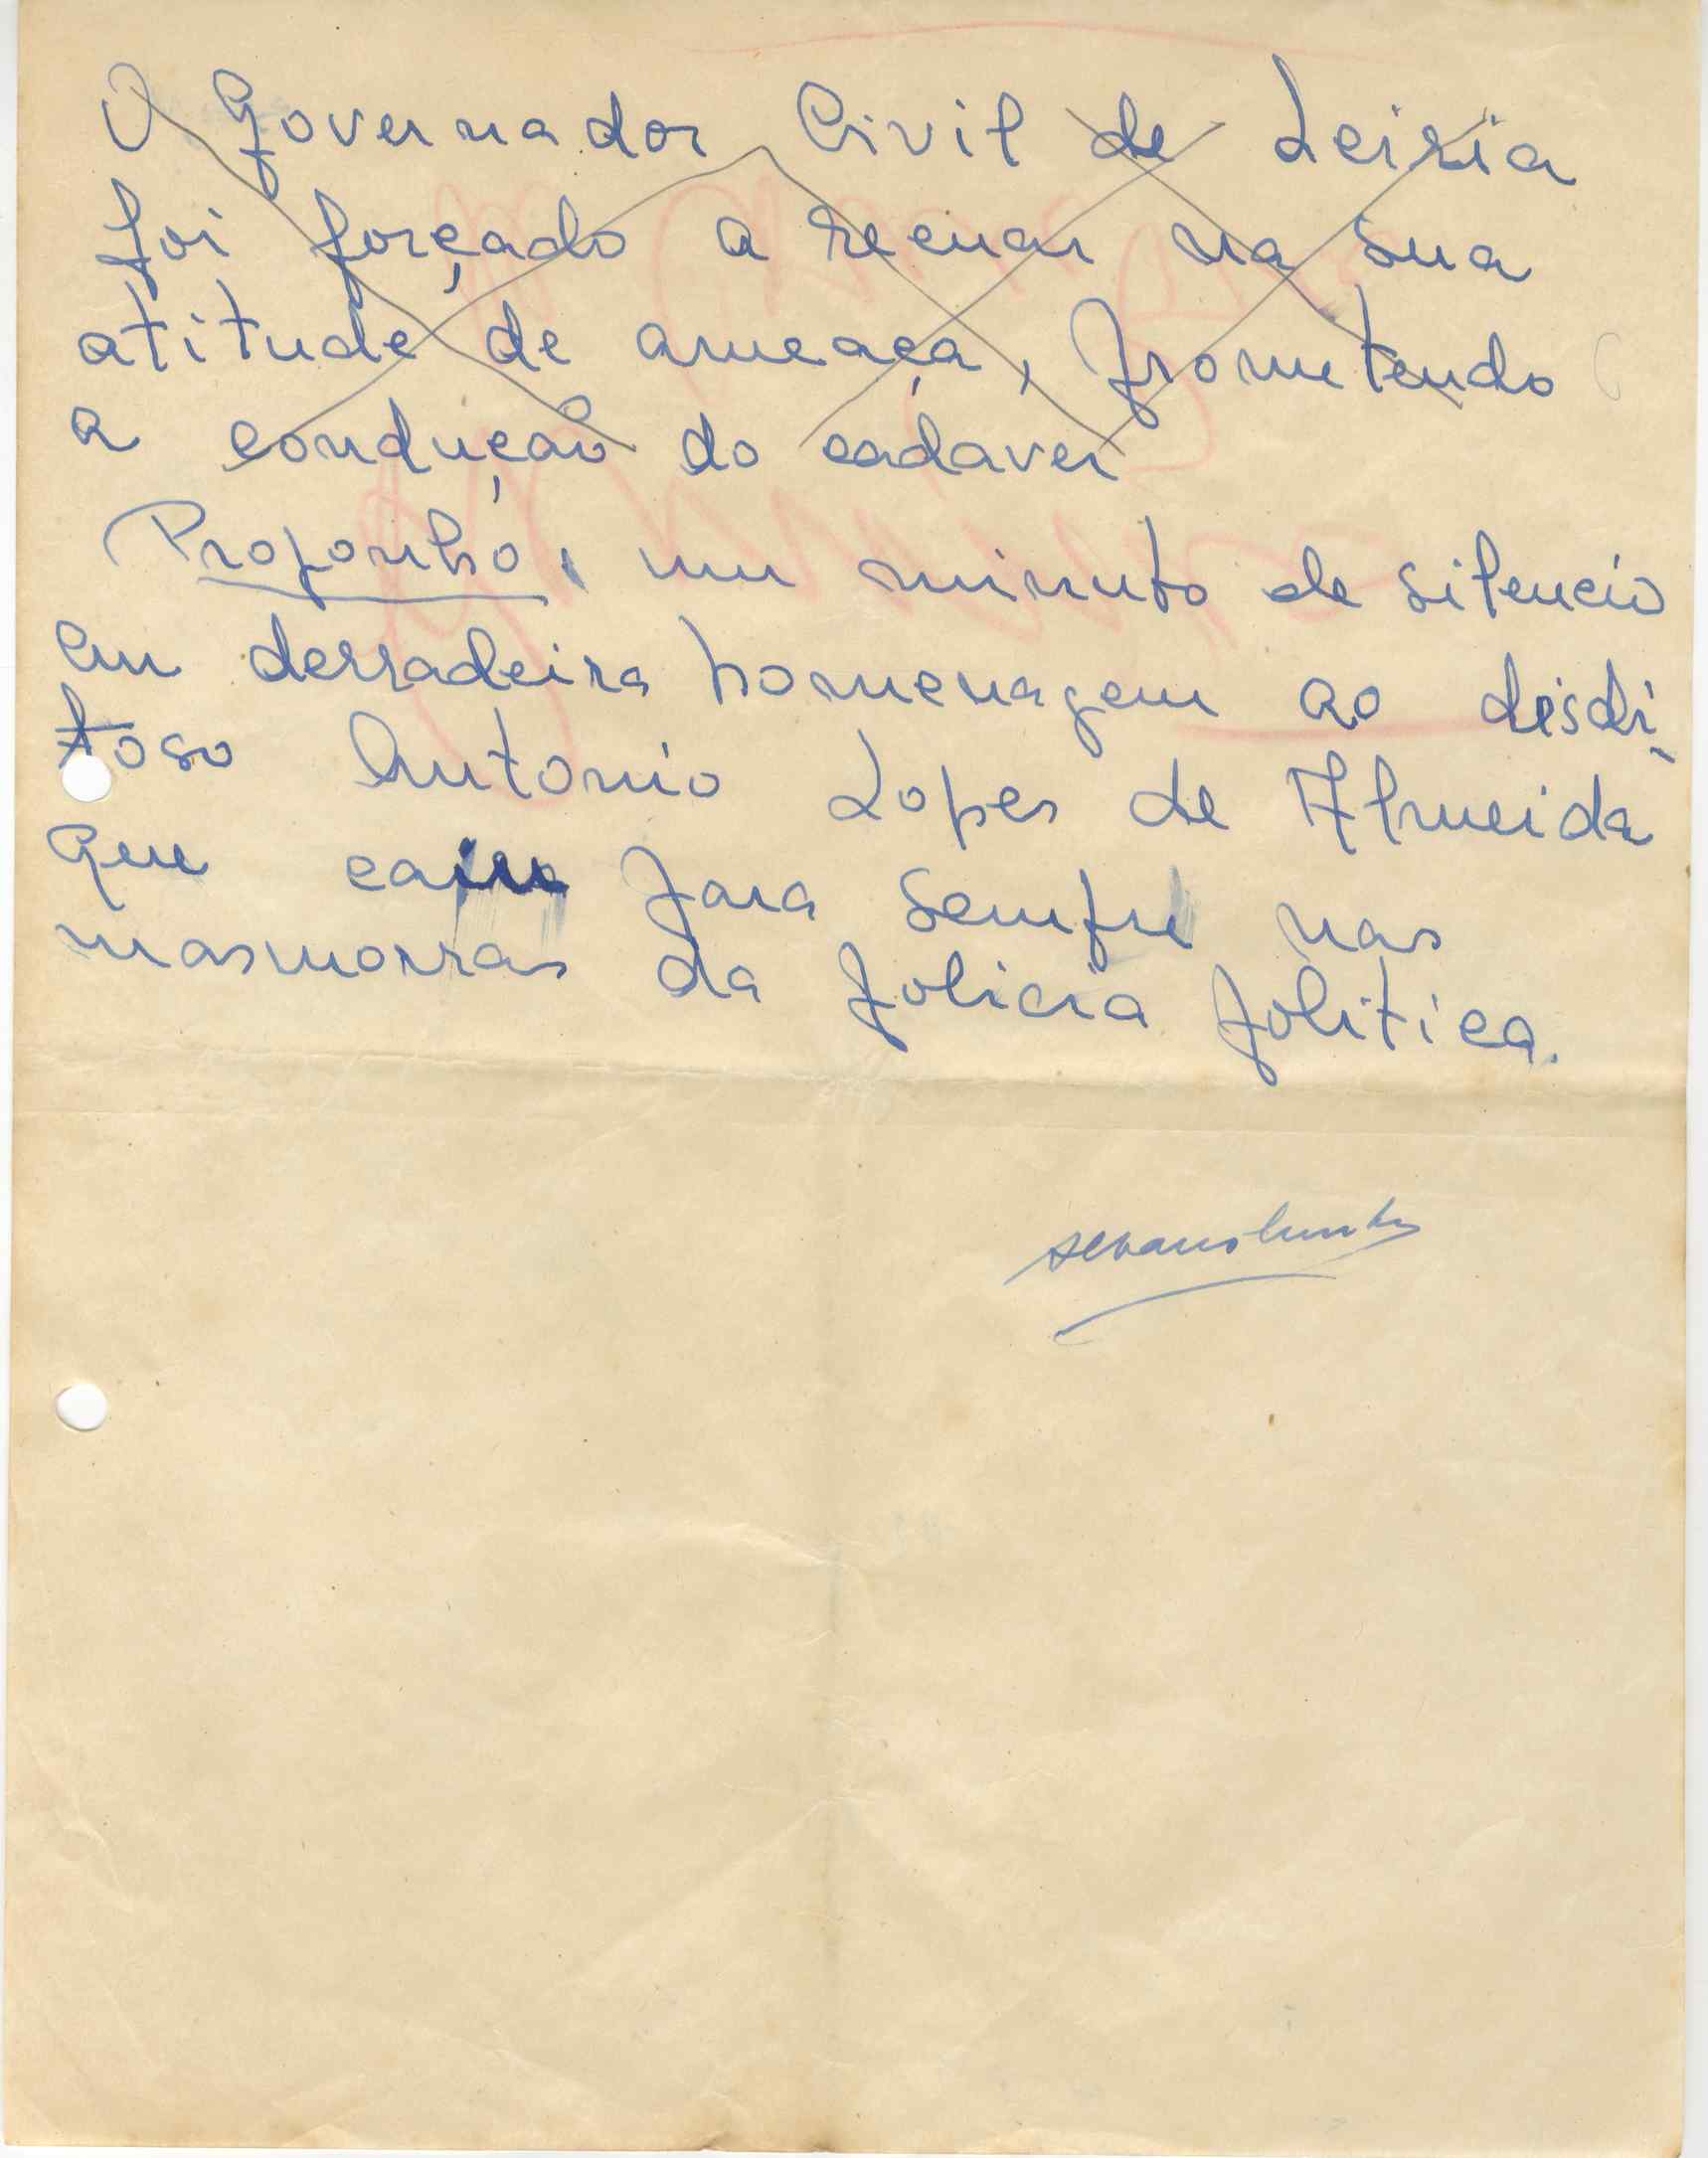 O Governador Civil de Leiria
foi forçado a recuar na sua
atitude de ameaça, prometendo
a condução do cadaver
Proponho, um minuto de silencio
em derradeira homenagem ao desdi-
toso Antonio Lopes de Almeida
que caiu para sempre nas
masmorras da policia politica.